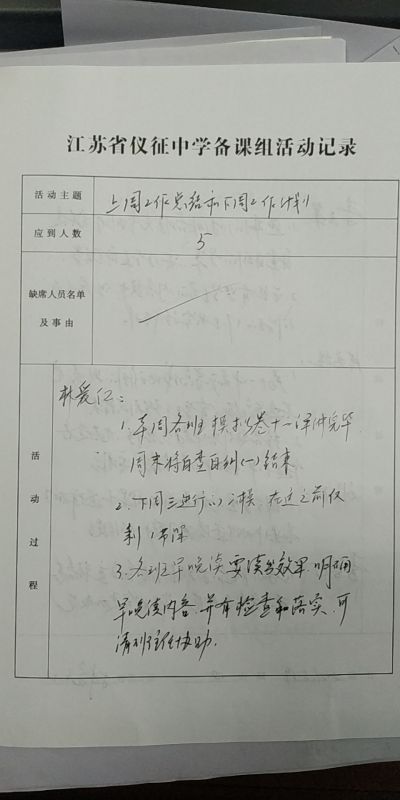 江苏省仪征中学备课组活动记录
活动主题 上周工作总结和下周工作计划
应到人数 5
缺席人员名单
及事由
活动过程
林爱仁:
1. 本周各班模拟卷十一评讲完毕
周末将自查自纠(一)结束
2. 下周三进行 模 在这之前仅
剩1节课
3. 各班早晚读要读出效果 明确
早晚读内容,并有检查和落实,可
请班主任协助.